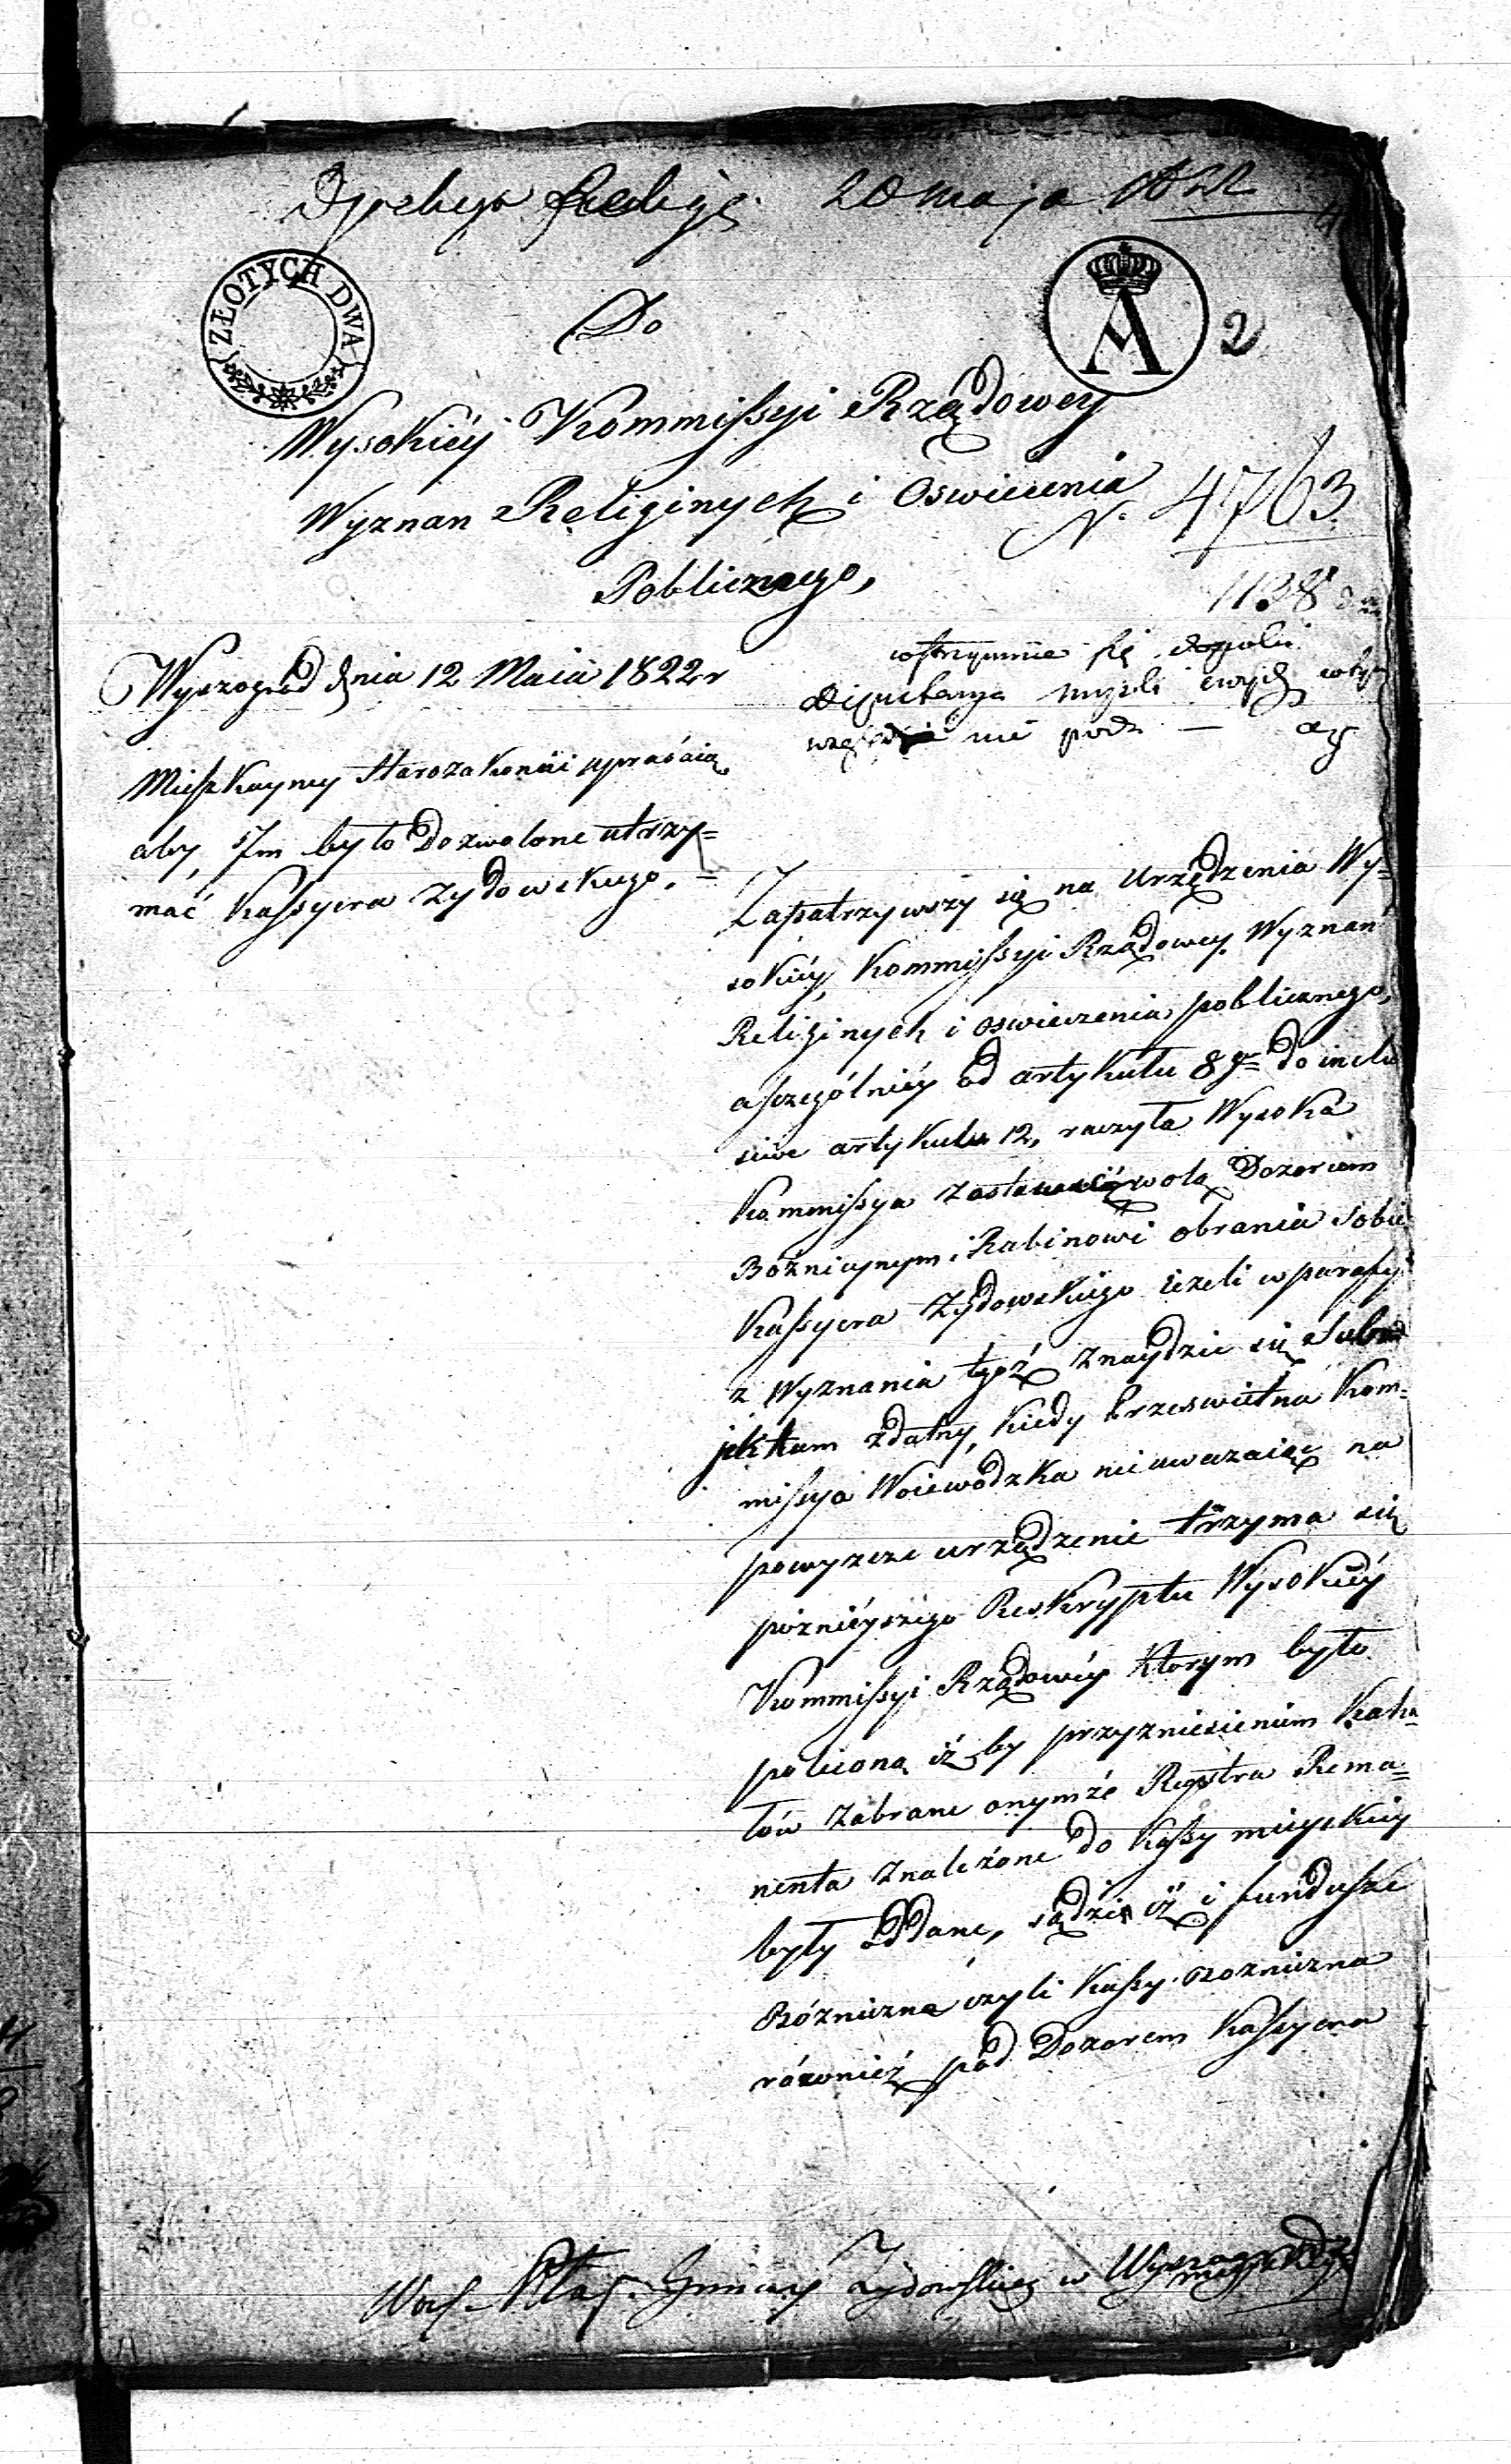 20 maja 1822
ZŁOTYCH DWA
A
2
Do
Wysokiéy Kommissyi Rządowey
Wyznan Religinych i Oswiecenia
Poblicznego,
N. 4763
1138
Wyszogród dnia 12 Maia 1822 r
wstrzymnie się
Deputacya myśli swych
nie poda — ay
Mieszkayncy Starozakonni upraszaią
aby, Im było Dozwolone utrzy=
mać Kassyera Zydowskiego. —
Zapatrzywszy się na Urządzenia Wy=
sokiéy Kommissyi Rządowey Wyznań
Religinych i oswiecenia poblicznego,
a szczególniéy od artykułu 8go do inclu
sive artykułu 12, raczyła Wysoka
Kommissya zostawić wolą Dozorcom
Bóżnicynym i Rabinowi obrania sobie
Kassyera Zydowskiego ieżeli w parafyi
z Wyznania tegoż znaydzie się Sub
jektum zdatny, kiedy Prześwietna Kom=
missya Woiewodzka nieuważaiąc na
powyzsze urządzenie trzyma się
poznieyszego Reskryptu Wysokiéy
Kommissyi Rządowéy ktorym było
poliecono iż by przyzniesieniem Kaha
łów zabrane onymże Regstra Rema=
nenta znalezone do Kassy mieyskiey
były oddane, sądzi iż i fundusze
Bóżniczna czyli Kassy Boznicza
również pod Dozorem Kassyera
Gminy Zydowskiey w Wyszogrodzie
mieyskiego